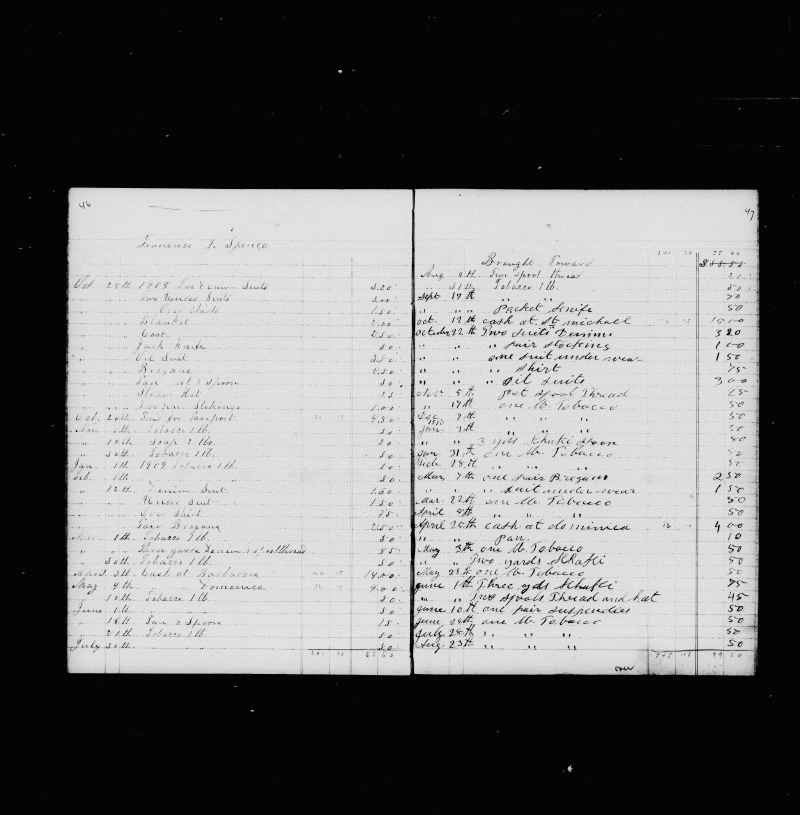 46
Francisco T. Spence
Oct 20th 1908 Two Denim Suits 3.20
" " " Two Under Suits 3.00
" " " Over Shirts 1.50
" " " Blanket 2.00
" " " Coat 2.50
" " " Jack Knife 50
" " " Oil Suit 3.50
" " " Brogans 2.50
" " " Pan pot & Spoon 50
" " " Straw Hat 25
" " " Two pair Stckings 1.00
Oct. 20th for Passport
Nov. Tobacco 1 lb. 50
" 10th Soap 2 lbs.
" 30th Tobacco 1 lb. 50
Jan. 1th 1909 Tobacco 1 lb. 50
Feb. 1th " " 50
" 12th Denim Suit 1.50
" " Under Suit 1.50
" " Over Shirt 75
" " Pair Brogans 2.50
1th Tobacco 1 lb. 50
" " Three yards Denim & spool thread 85
" 30th Tobacco 1 lb. 50
April 3th Cash at Barbadoes 14.00
May 9th " " Domenica 4.00
" 10th Tobacco 1 lb. 50
June 1th " " 50
" 18th Pan & Spoon 15
" 21th Tobacco 1 lb. 50
July 31th " " 50
47
Brought Forward
Aug 9th Two spool thread 20
" 31th Tobacco 1 lb. 50
Sept 17th " " 50
" " Pocket Knife 50
Oct. 12th cash at St michall 15 00
October 22th Two Suits Denims 3 20
" " " pair stockings 1 00
" " one suit under wear 1 50
" " " shirt 75
" " " oil suits 3 00
Nov. 5th pot spool Thread 25
" 17th one lb. Tobacco 50
Dec. 7th " " " 50
Jan 1910 3th " " " 50
" " 3 yds Khaki 50
Jan 31th one lb. Tobacco 50
Feb. 28th " " " 50
Mar. 7th one pair Brogans 2 50
" " " suit under wear 1 50
Mar. 22th one lb. Tobacco 50
April 4th " " " 50
April 25th cash at dominica 4 00
" " Pan 10
May 3th one lb. Tobacco 50
" " Two yards Khakti 50
May 23th one lb. Tobacco 50
June 1th Three yds Khakti 75
" " Two spools Thread and hat 45
June 10th one pair suspendies 50
June 28th one lb. Tobacco 50
July 28th " " " 50
Aug. 23th " " " 50
99 10
over